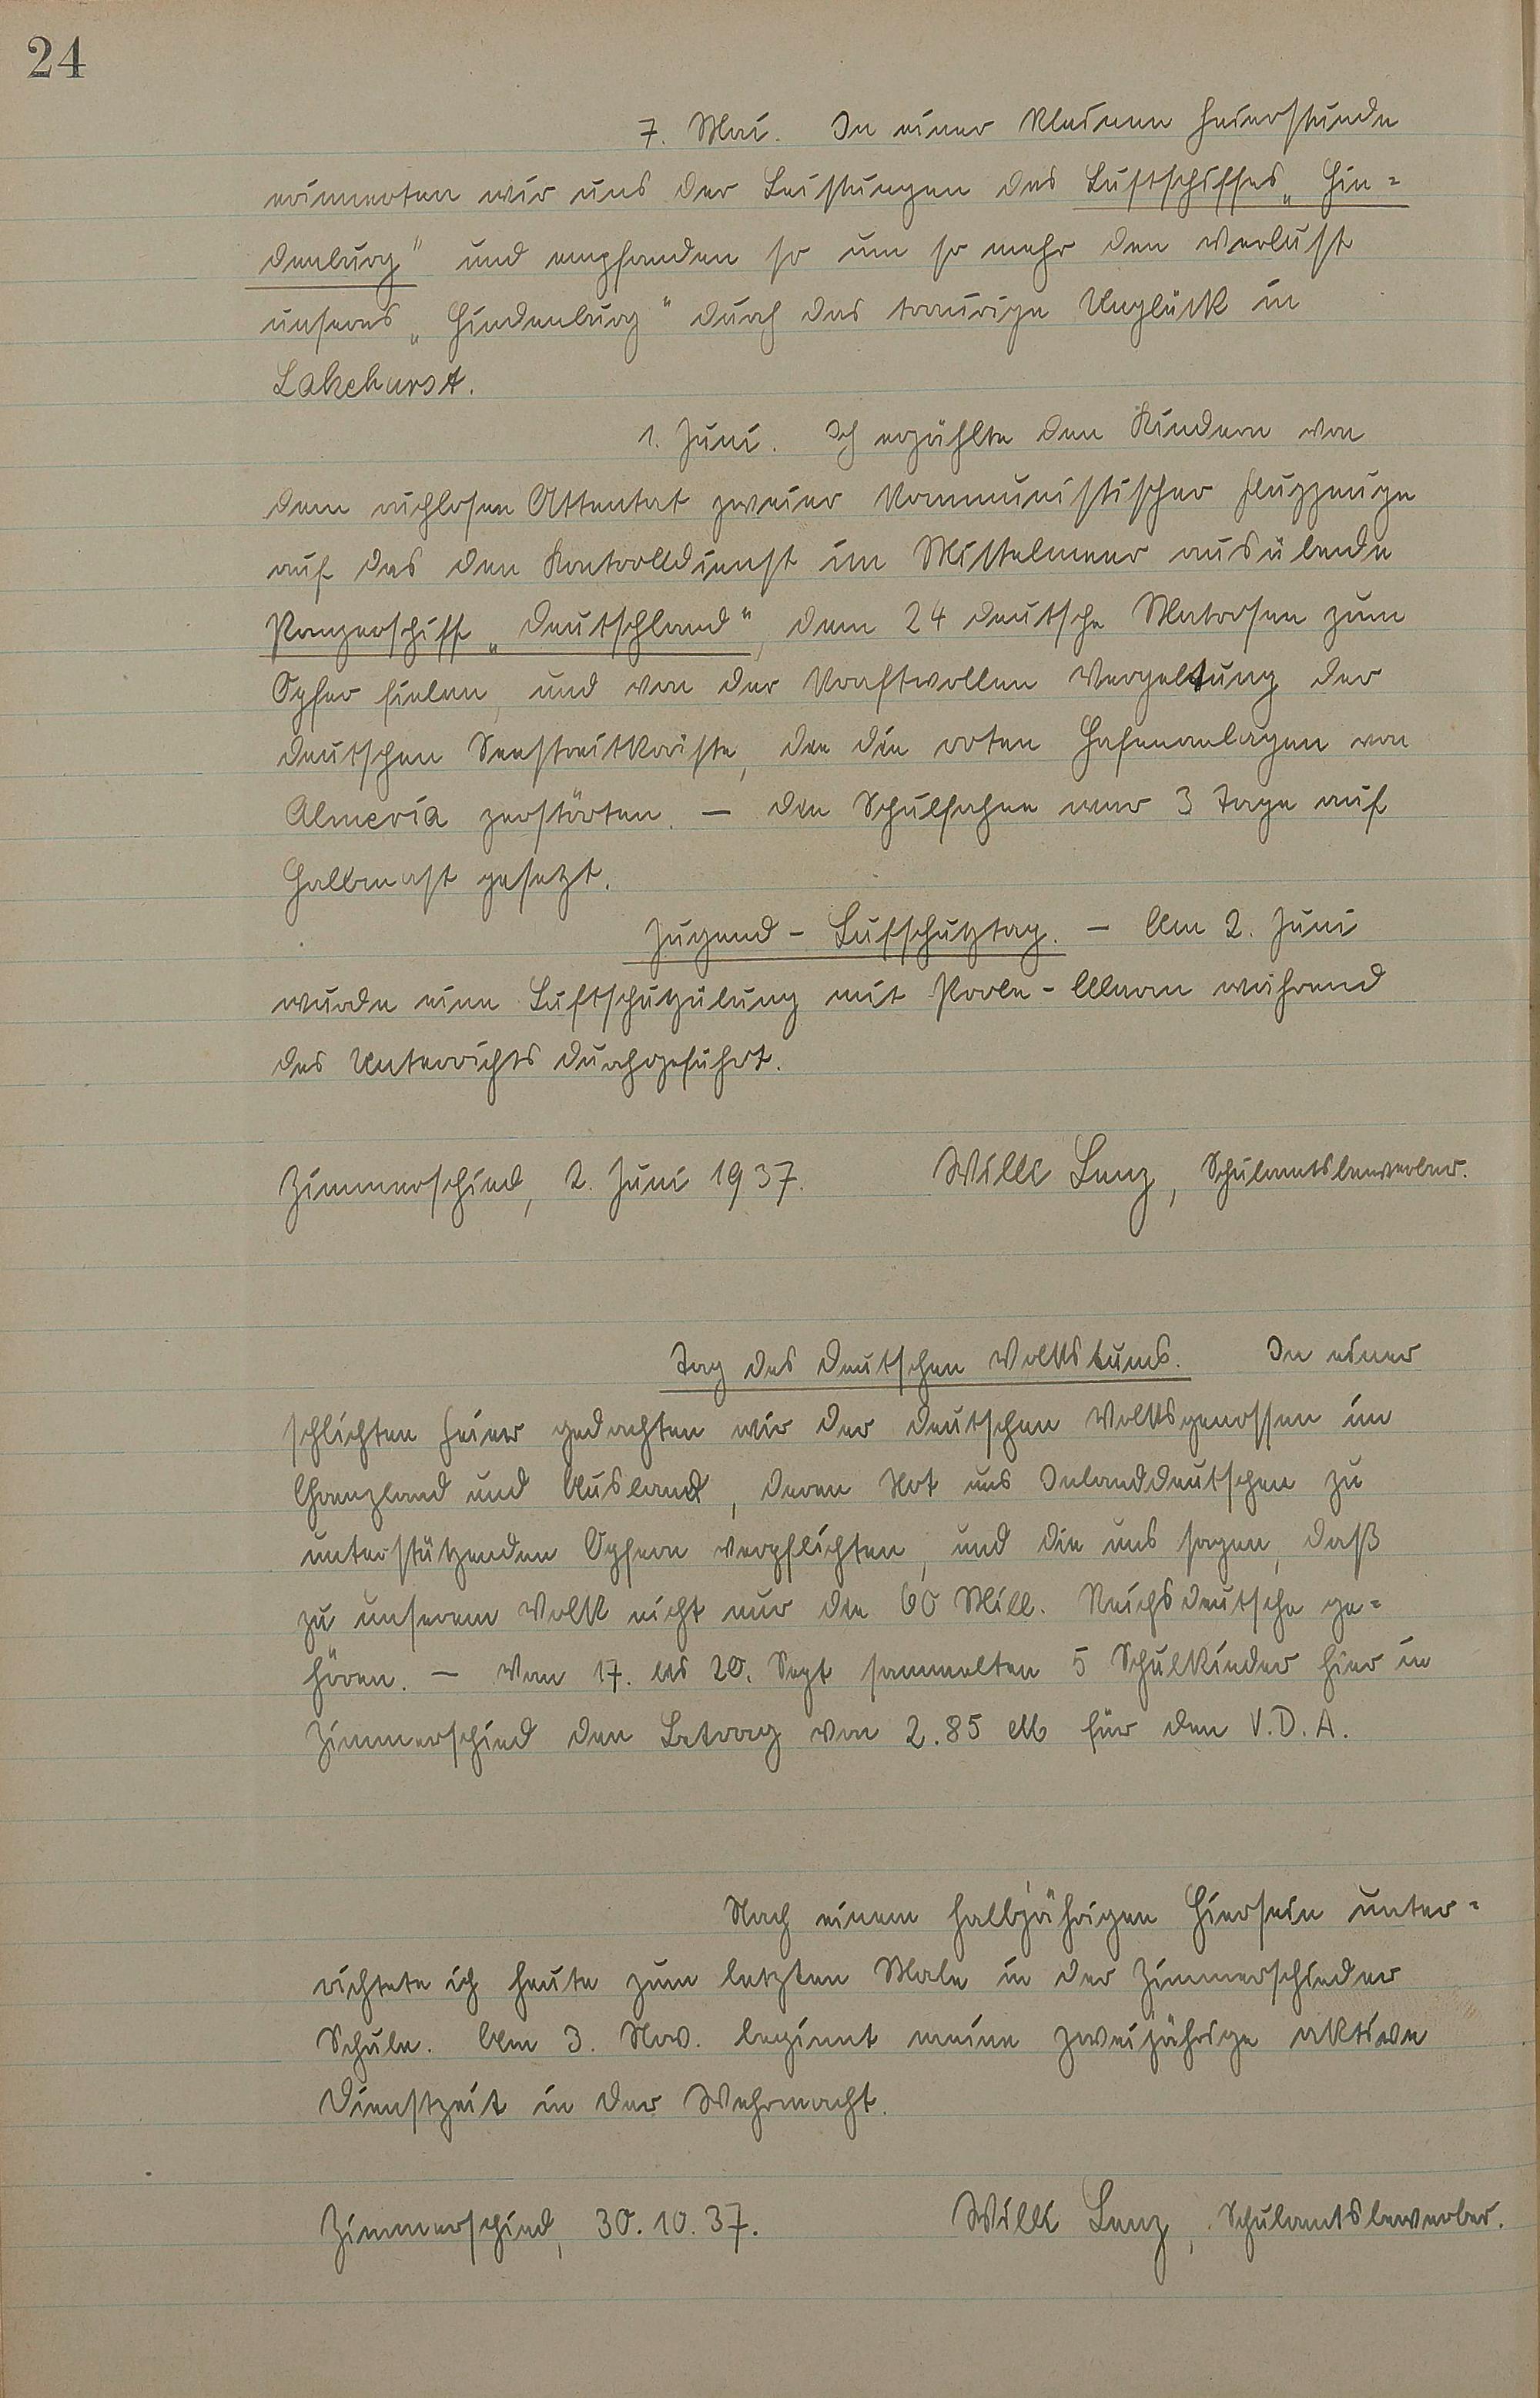 24
7. Mai. In einer kleinen Feierstunde
erinnerten wir uns der Leistungen des Luftschiffes „Hin=
denburg" und empfanden so um so mehr den Verlust
unseres „Hindenburg" durch das traurige Unglück in
Lakehurst.
1. Juni. Ich erzählte den Kindern von
dem ruchlosen Attentat zweier kommunistischer Flugzeuge
auf das den Kontrolldienst im Mittelmeer ausübende
Panzerschiff „Deutschland", dem 24 deutsche Matrosen zum
Opfer fielen, und von der kraftvollen Vergeltung der
deutschen Seestreitkräfte, die die roten Hafenanlagen von
Almeria zerstörten. — Die Schulfahne war 3 Tage auf
Halbmast gesetzt.
Jugend-Lufschutztag. — Am 2. Juni
wurde eine Luftschutzübung mit Probe-Alarm während
des Unterrichts durchgeführt.
Zimmerschied, 2. Juni 1937. Willi Lenz, Schulamtsbewerber.
Tag des deutschen Volkstums. In einer
schlichten Feier gedachten wir der deutschen Volksgenossen im
Grenzland und Ausland, deren Not uns Inlanddeutschen zu
unterstützenden Opfern verpflichten, und die uns sagen, daß
zu unserem Volk nicht nur die 60 Mill. Reichsdeutsche ge=
hören. — Vom 17. bis 20. Sept sammelten 5 Schulkinder hier in
Zimmerschied den Betrag von 2.85 M für den V.D.A.
Nach einem halbjährigen Hiersein unter=
richtete ich heute zum letzten Male in der Zimmerschieder
Schule. Am 3. Nov. beginnt meine zweijährige aktive
Dienstzeit in der Wehrmacht.
Zimmerschied, 30.10.37. Willi Lenz, Schulamtsbewerber.